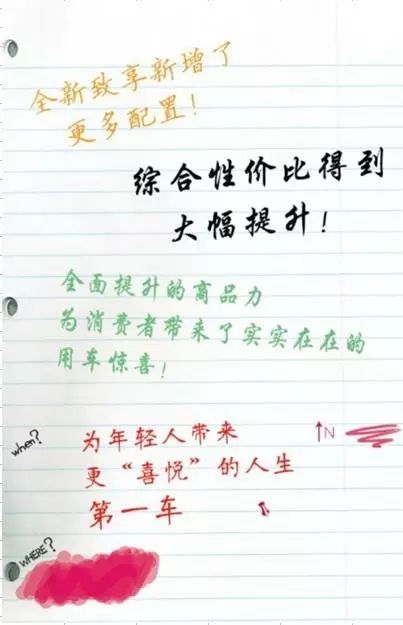 全新致享新增了
更多配置！
综合性价比得到
大幅提升！
全面提升的商品力
为消费者带来了实实在在的
用车惊喜！
when?
为年轻人带来
↑N
更“喜悦”的人生
第一车
WHERE?